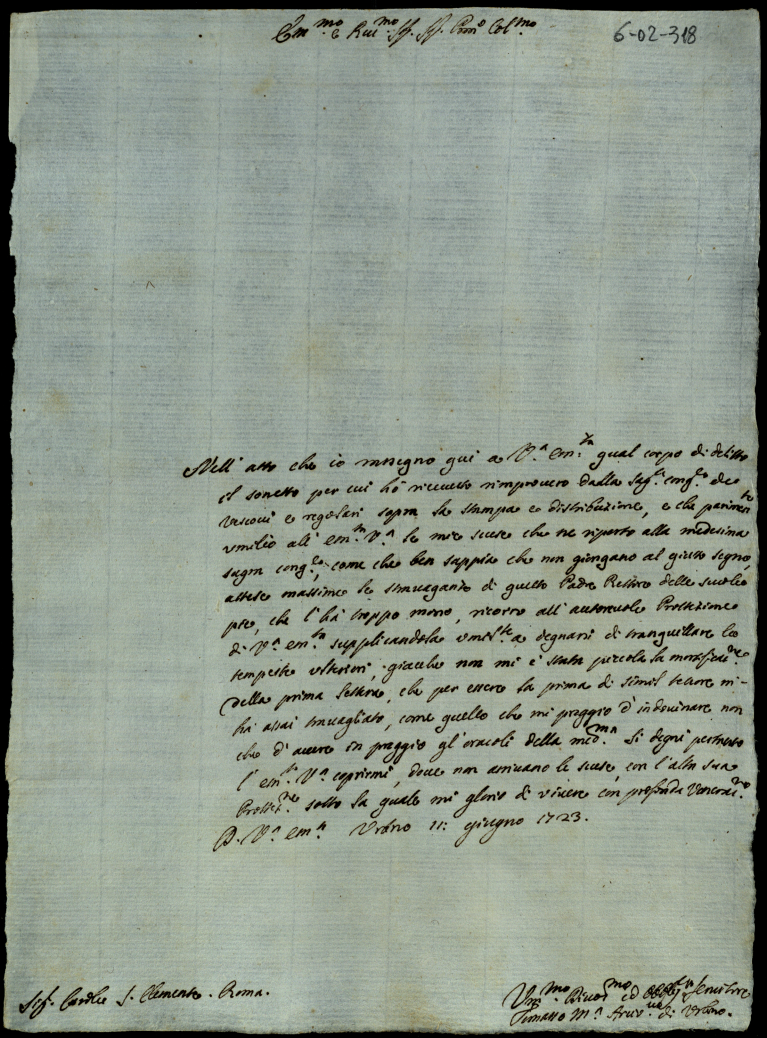 Em.mo e Rev.mo Sig. Sig. Pron. Col.mo
6-02-318
Nell' atto che io rassegno qui a V.a Em.za qual corpo di delitto
il sonetto per cui hò ricevuto rimprovero dalla Sag.a Cong.e de
Vescovi e regolari sopra la stampa e distribuzione, e che parimen.te
umilio all' Em.za V.a le mie scuse che ne riporto alla medesima
sagra Cong.e, come che ben sappia che non giongano al giusto segno,
attese massime le stravaganze di questo Padre Rettore delle scuole
pie, che l'hà troppo mosso, ricorro all' autorevole Protezione
di V.a Em.za supplicandola umil.te a degnarsi di tranquillare le
tempeste ulteriori, giacche non mi è stata piccola la mortificaz.ne
della prima lettera, che per essere la prima di simil tenore mi
hà assai travagliato, come quello che mi preggio d'indovinare non
che d'avere in preggio gl'oracoli della med.ma Si degni pertanto
l'Em.za V.a coprirmi, dove non arrivano le scuse, con l'alta sua
Protez.ne sotto la quale mi glorio di vivere con profonda veneraz.ne
D. V.a Em.za Urbino 11: giugno 1723.
Sig. Cardle S. Clemente. Roma.
Um.mo Divot.mo ed Obblig.mo Servitore
Tomasso M.a Arciv.o di Urbino.